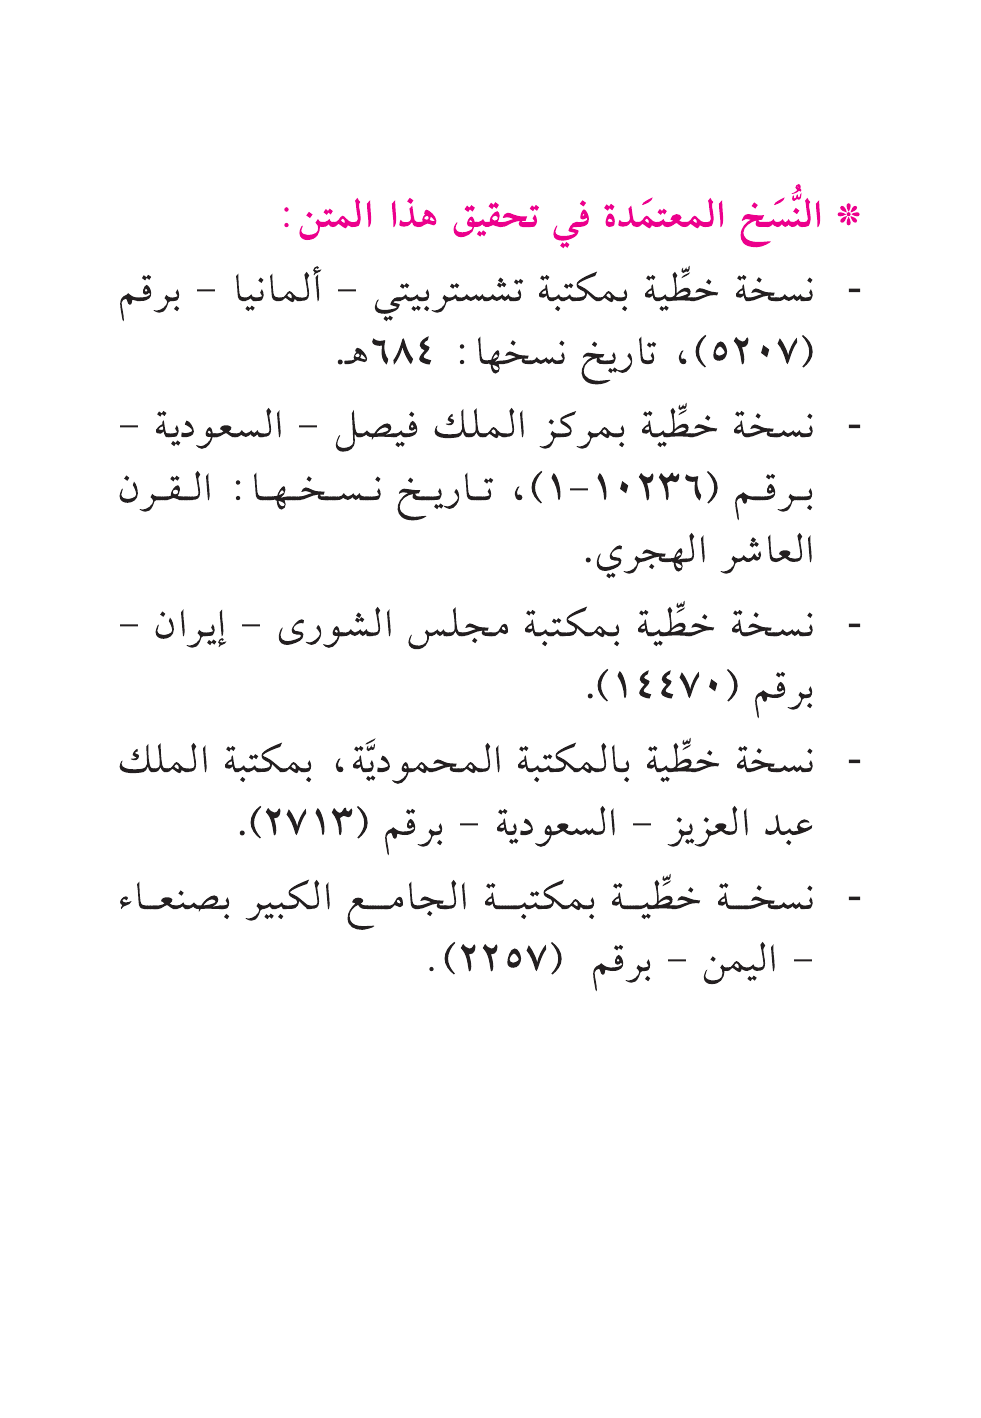 ❊ النُّسَخ المعتمَدة في تحقيق هذا المتن:
- نسخة خطِّية بمكتبة تشستربيتي – ألمانيا – برقم
(٥٢٠٧)، تاريخ نسخها: ٦٨٤هـ.
- نسخة خطِّية بمركز الملك فيصل – السعودية –
برقم (١٠٢٣٦-١)، تاريخ نسخها: القرن
العاشر الهجري.
- نسخة خطِّية بمكتبة مجلس الشورى – إيران –
برقم (١٤٤٧٠).
- نسخة خطِّية بالمكتبة المحموديَّة، بمكتبة الملك
عبد العزيز – السعودية – برقم (٢٧١٣).
- نسخة خطِّية بمكتبة الجامع الكبير بصنعاء
– اليمن – برقم (٢٢٥٧).